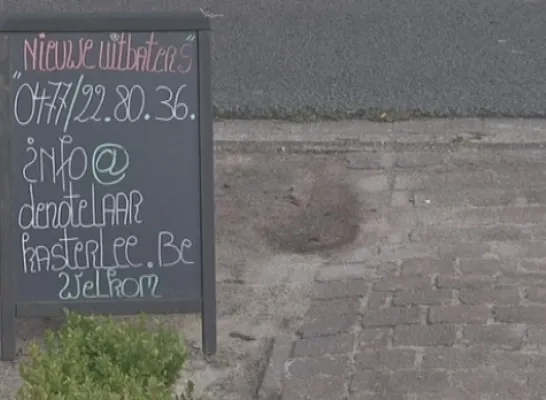 "Nieuwe uitbaters"
0477/22.80.36.
info@
denotelAAR
kasterlee.Be
Welkom